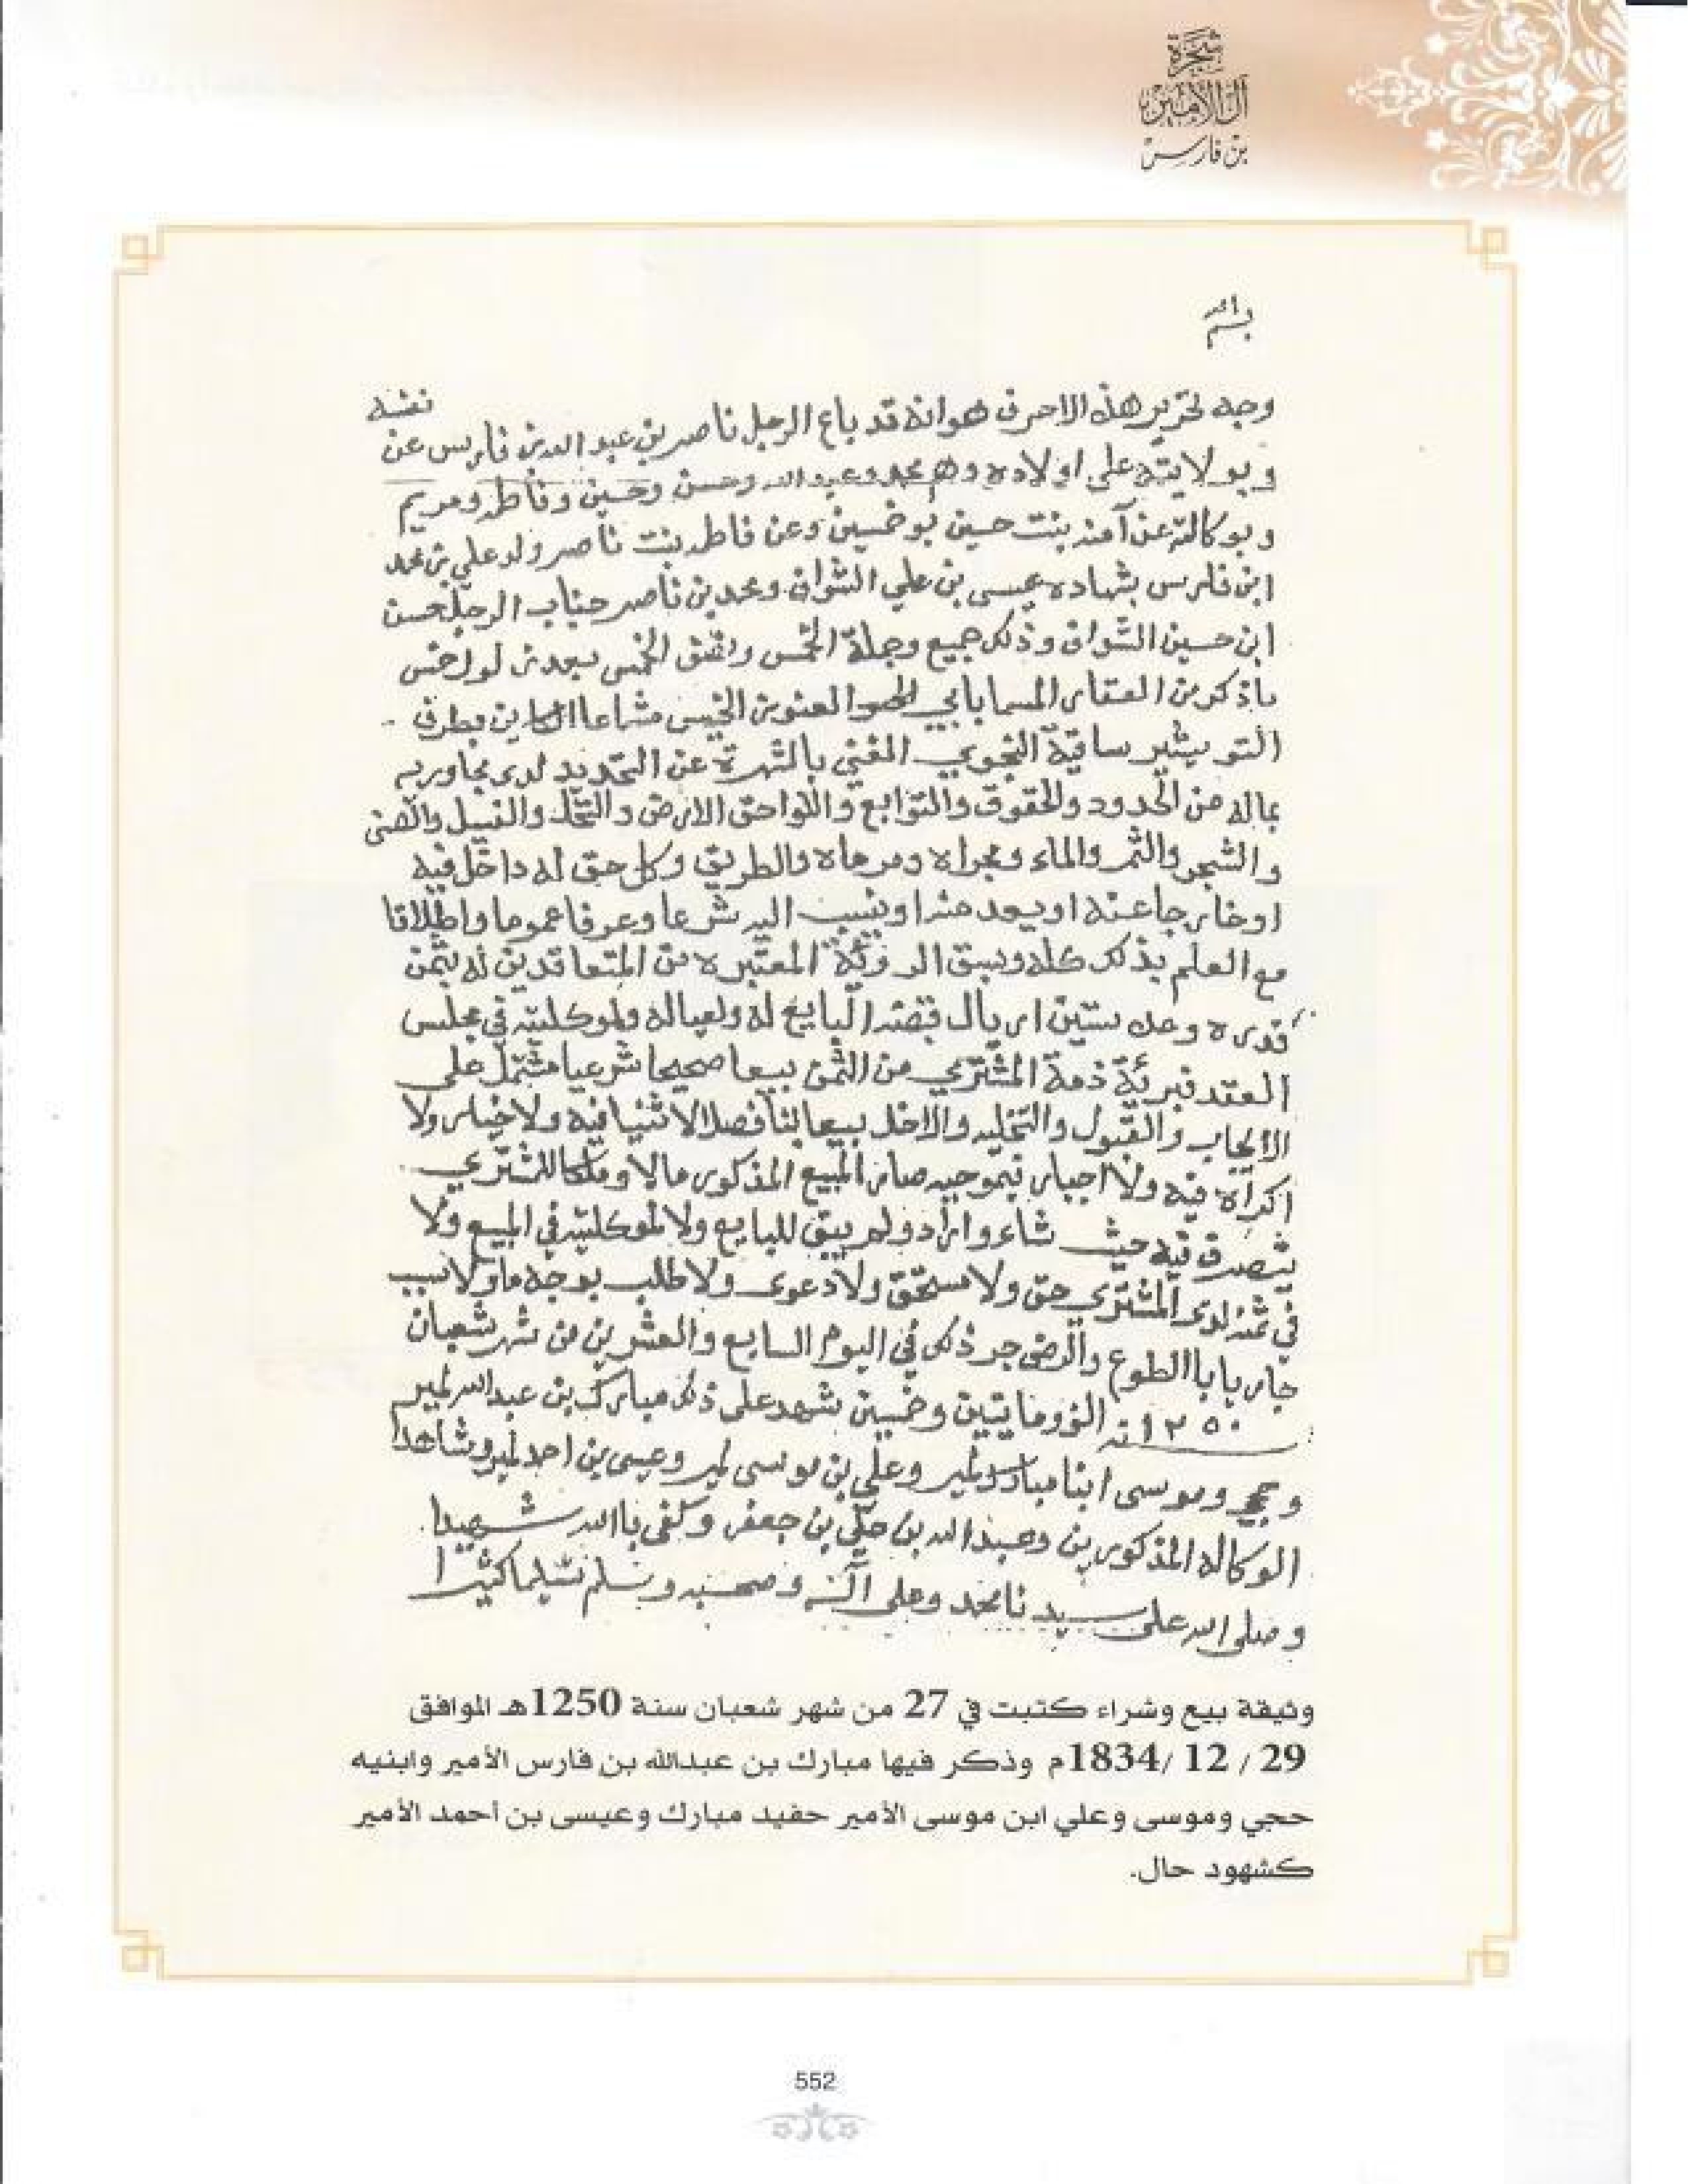 شجرة
آل الأمير
بن فارس
بسم الله
وجه تحرير هذه الاحرف هو انه قد باع الرجل ناصر بن عبد الله بن فارس عن نفسه
وبولايته على اولاده وهم محمد وعبد الله وحسن وحسين وفاطمه ومريم
وبوكالته عن آمنه بنت حسين بوخمسين وعن فاطمه بنت ناصر ولد علي بن محمد
ابن فارس بشهاده عيسى بن علي الشواف ومحمد بن ناصر جناب الرجل حسن
ابن حسين الشواف وذلك جميع وجملة الخمس ونصف الخمس
ما ذكر من العقار المسما مشاعا الكاين بطرف
التويثير ساقية النجوي المغني بالشهرة عن التحديد لدى مجاوريه
بماله من الحدود والحقوق والتوابع واللواحق الارض والنخل والفسيل والصنى
والشجر والثمر والماء ومجراه ومرماه والطريق وكل حق له داخل فيه
او خارجا عنه او يعد منه او ينسب اليه شرعا وعرفا عموما واطلاقا
مع العلم بذلك كله وسبق الروئية المعتبره من المتعاقدين له بثمن
قدره وعده ستين اريال قبضه البايع له ولعياله ولموكلينه في مجلس
العقد فبرئة ذمة المشتري من الثمن بيعا صحيحا شرعيا مشتمل على
الايجاب والقبول والتخليه بيعا لاثنيا فيه ولا خيار ولا
اكراه فيه ولا اجبار فبموجبه صار المبيع المذكور مالا وملكا للمشتري
يتصرف فيه حيث شاء واراد ولم يبق للبايع ولا لموكلينه في المبيع ولا
في ثمنه لدى المشتري حق ولا مستحق ولا دعوى ولا طلب بوجه ما ولا سبب
جار باباالطوع والرضى جر ذلك في اليوم السابع والعشرين من شهر شعبان
١٢٥٠ الف وماىتين وخمسين شهد على ذلك مبارك بن عبد الله لمير
وحجي وموسى ابنا مبارك لمير وعلي بن موسى لمير وعيسى بن احمد لمير وشاهدا
الوكاله المذكورين وعبد الله بن حكي بن جعفر وكفى باالله شهيدا
وصلى الله على سيدنا محمد وعلى آله وصحبه وسلم تسليما كثيرا
وثيقة بيع وشراء كتبت في 27 من شهر شعبان سنة 1250هـ الموافق
29 / 12 /1834م وذكر فيها مبارك بن عبدالله بن فارس الأمير وابنيه
حجي وموسى وعلي ابن موسى الأمير حفيد مبارك وعيسى بن أحمد الأمير
كشهود حال.
552